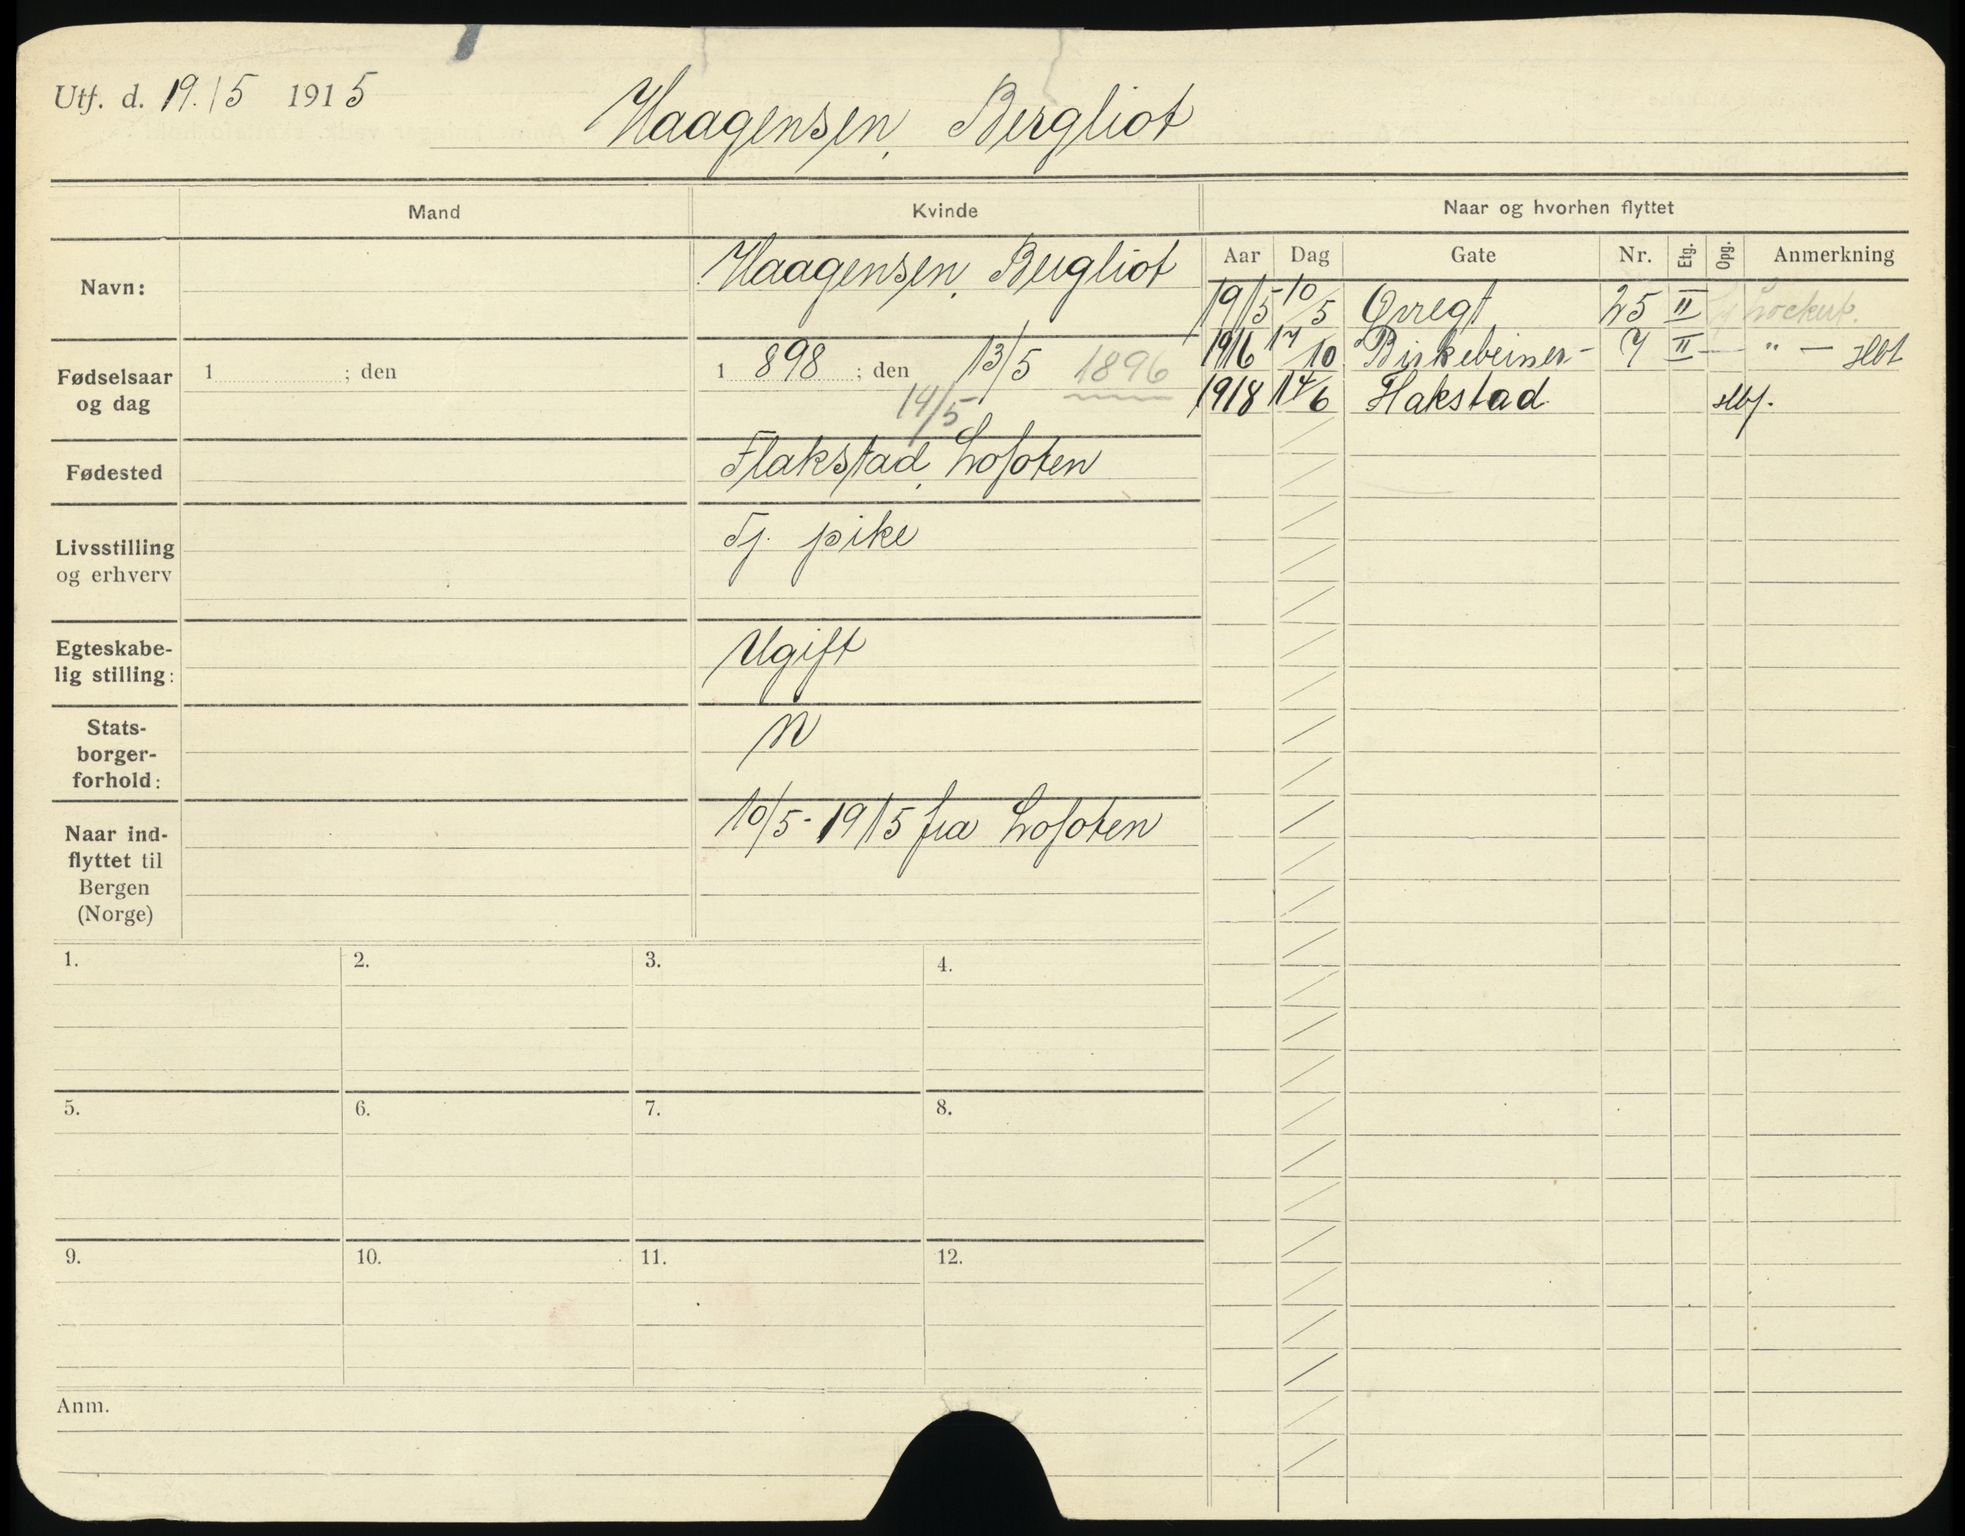 Utf. d. 19./5 1915
Haagensen, Bergliot
Mand
Kvinde
Naar og hvorhen flyttet
Aar Dag Gate Nr. Etg. Opg. Anmerkning
Navn:
Haagensen, Bergliot
1915 10/5 Øvregt 25 II
1916 17/10 Birkebeiner- 7 II — " —
1918 14/6 Flakstad
Fødselsaar
og dag
1 ; den
1 898 ; den 13/5 1896
14/5
Fødested
Flakstad, Lofoten
Livsstilling
og erhverv
Tj. pike
Egteskabe-
lig stilling:
Ugift
Stats-
borger-
forhold:
N
Naar ind-
flyttet til
Bergen
(Norge)
10/5-1915 fra Lofoten
1. 2. 3. 4.
5. 6. 7. 8.
9. 10. 11. 12.
Anm.